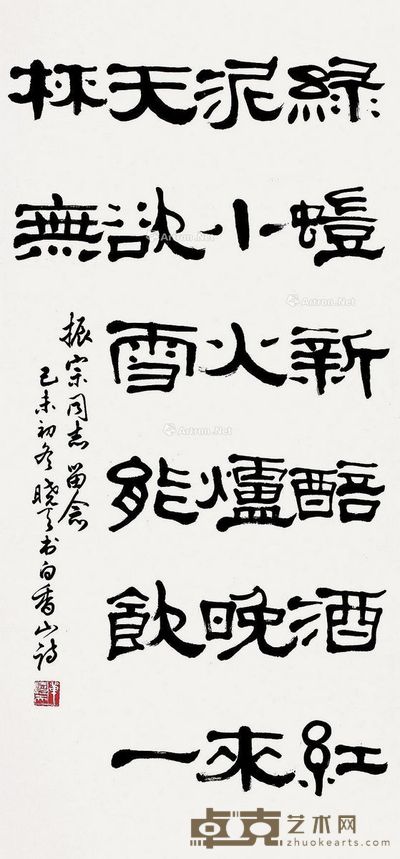 綠螘新醅酒紅
泥小火爐晚來
天欲雪能飲一
杯無
振宗同志留念
己未初冬晓天书白香山诗
Artron.Net
Artron.Net
Artron.Net
卓克艺术网
zhuokearts.com